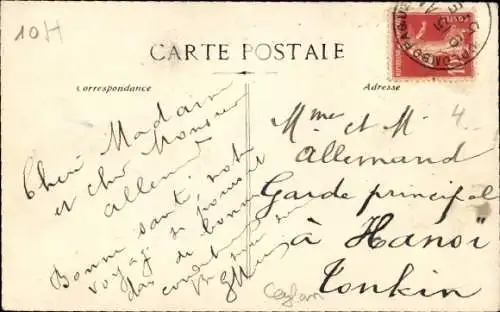 10H
CARTE POSTALE
Correspondance
Adresse
Chère Madame
et cher Monsieur
Allemand
Bonne santé, notre
voyage se poursuit
dans de bonnes
conditions
Mme et M.
Allemand
Garde principal
à Hanoï
Tonkin
4
Ceylan